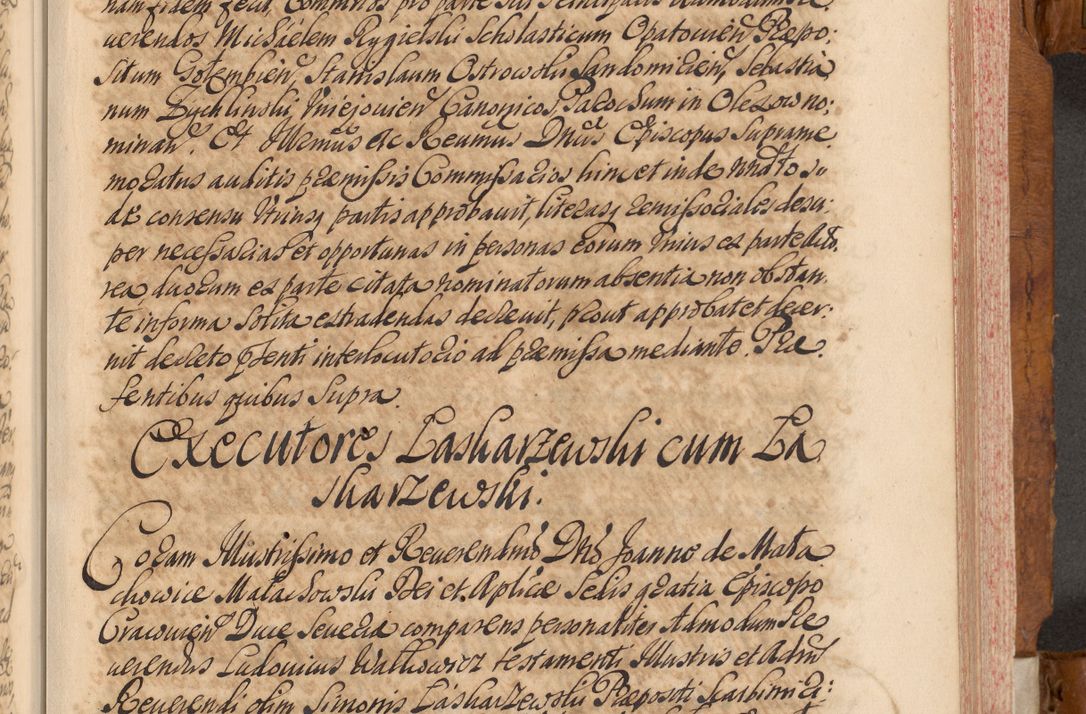 nam fidem fecit, Commiss pro parte sui Principalis Admodum Re
uerendos Michaelem Rygielski Scholasticum Opatouien Præpo:
situm Gołembien, Stanislaum Ostrowski Sandomirien, Sebastia
num Zychlinski Vniejouien Canonicos, Parochum in Olezow no:
minauit. Et Illmus etc Reumus Dnus Episcopus Supramemo
moratus auditis præmissis Commissarios hinc et inde nnatos
de consensu vtriusq partis approbauit, literasq remissoriales desu,
per necessarias et opportunas in personas eorum vnius ex parte Acto
rea, duorum ex parte citata nominatorum absentia non obstan
te in forma solita extradendas decreuit, prout approbat et decer:
nit decreto pnti interlocutorio ad præmissa mediante. Præ
sentibus quibus Supra.
Executores Laskarzewski cum La
skarzewski.
Coram Illustrissimo et Reuerendmo Dno Joanne de Mała
chowice Małachowski Dei et Aplicæ Sedis gratia Episcopo
Cracouien Duce Seueriæ comparens personaliter Admodum Re
uerendus Ludouicus Walkowicz testamenti Illustris et Adm
Reuerendi olim Simonis Laskarzewski Præpositi Skarbimir: